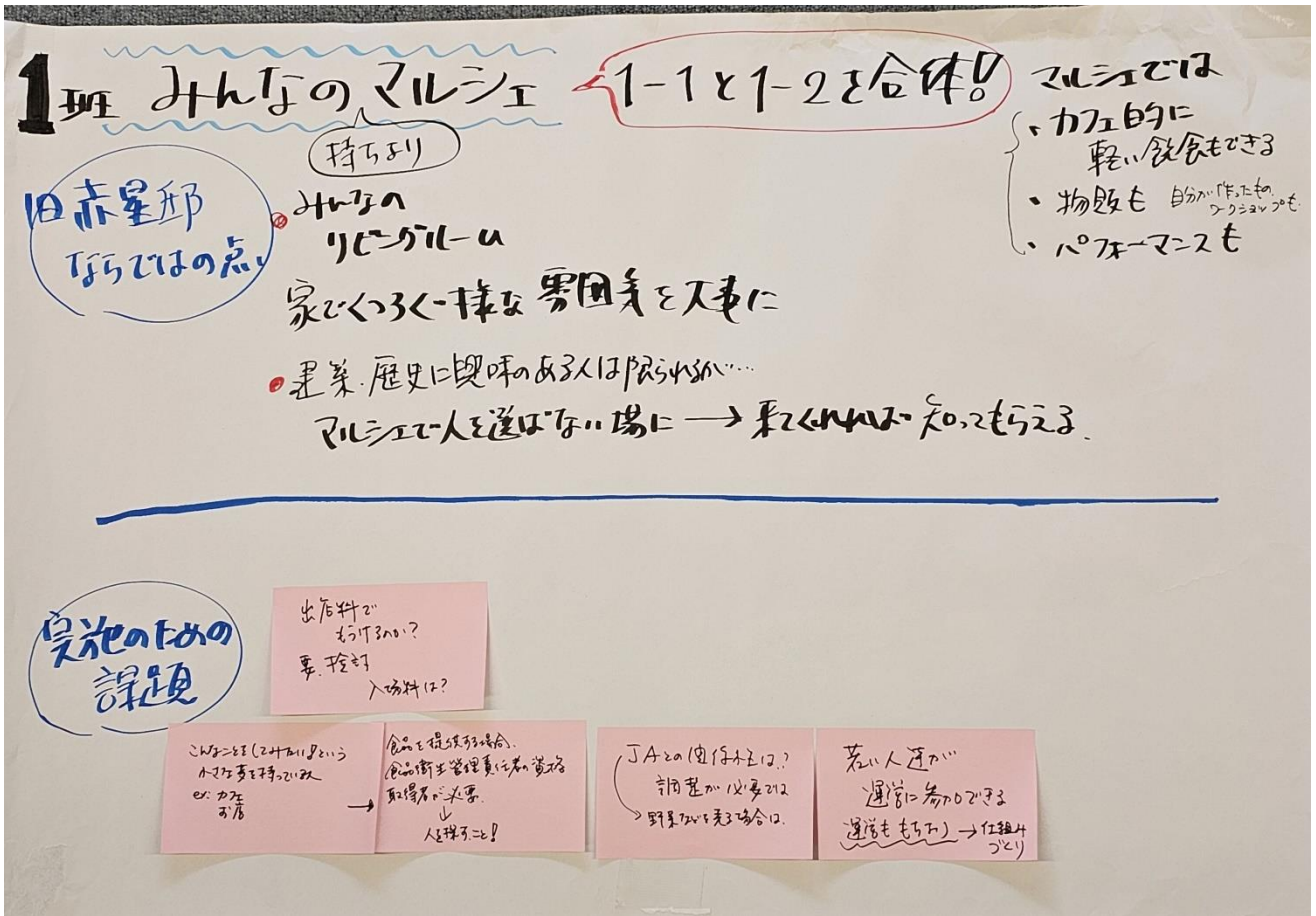 1班 みんなのマルシェ
持ちより
1-1と1-2を合体!!
マルシェでは
・カフェ的に
軽い飲食もできる
・物販も 自分が作ったもの、
ワークショップも
・パフォーマンスも
旧赤星邸
ならではの点
みんなの
リビングルーム
家でくつろぐ様な雰囲気を大事に
建築・歴史に興味のある人は限られるが…
マルシェで人を選ばない場に→来てくれれば知ってもらえる。
実施のための
課題
出店料で
もうけるのか?
要、検討
入場料は?
こんなことをしてみたい!という
小さな夢を持っている人
ex: カフェ
お店
→
食品を提供する場合、
食品衛生管理責任者の資格
取得者が必要。
↓
人を探すこと!
JAとの関係性は?
調整が必要では
野菜などを売る場合は、
若い人達が
運営に参加できる
運営ももちより→仕組み
づくり